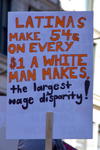 LATINAS
MAKE 54¢
ON EVERY
$1 A WHITE
MAN MAKES,
the largest
wage disparity!